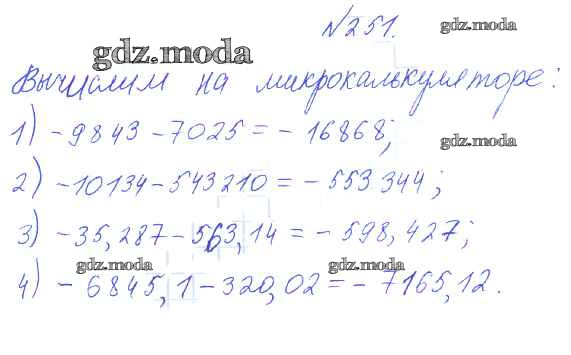 №251.
gdz.moda
gdz.moda
Вычислим на микрокалькуляторе:
1) -9843-7025=-16868;
gdz.moda
2) -10134-543210=-553344;
3) -35,287-563,14=-598,427;
gdz.moda
gdz.moda
4) -6845,1-320,02=-7165,12.